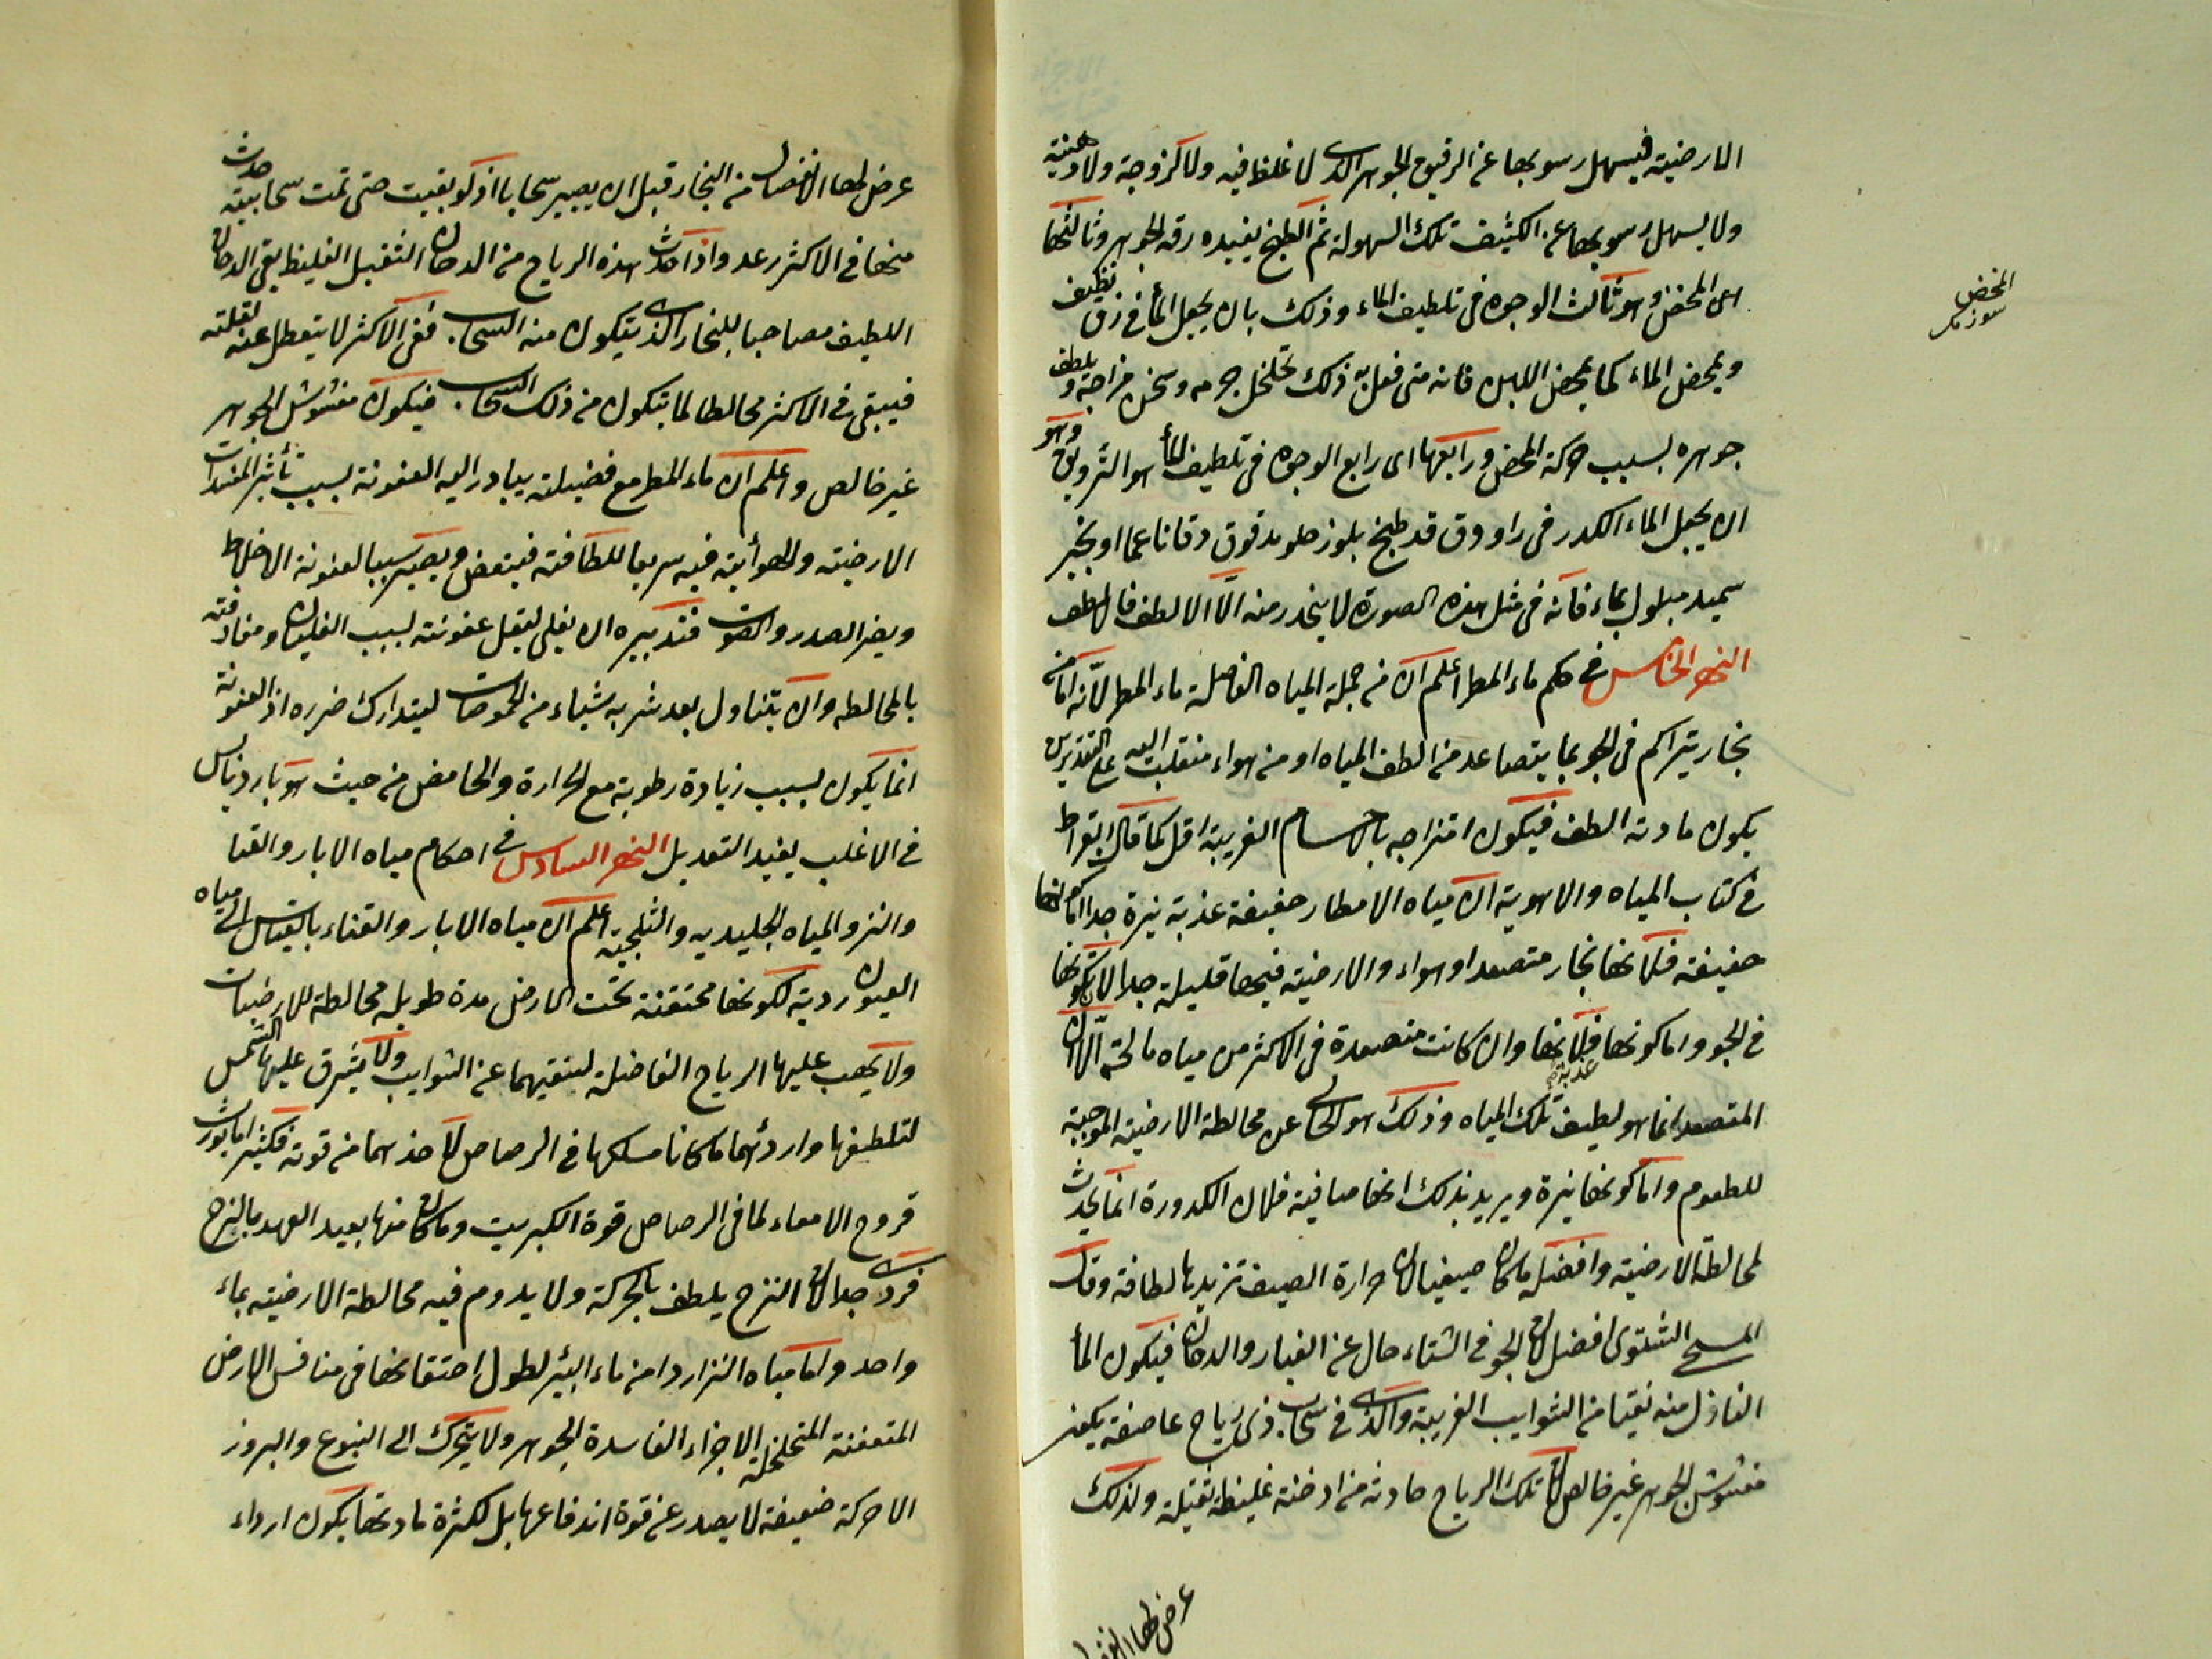 الارضية فيسهل رسوبها عن الرقيق الجوهر الذى لا غلظ فيه ولا لزوجة ولا دهنية
ولا يسهل رسوبها عن الكثيف تلك السهولة ثم الطبخ يفيده رقة الجوهر وثالثها
اى المخض وهو ثالث الوجوه فى تلطيف الماء وذلك بان يجعل الماء فى زق نظيف
ويمخض الماء كما يمخض اللبن فانه متى فعل به ذلك تخلخل جرمه وسخن مزاجه ويلطف
جوهره بسبب حركة المخض ورابعها اى رابع الوجوه فى تلطيف الماء هو الترويق وهو
ان يجعل الماء الكدر فى راووق قد طبخ بلوز حلو مدقوق دقا ناعما او بخبز
سميد مبلول بماء فانه فى مثل هذه الصورة لا ينحدر منه الا الالطف فالالطف
النهر الخامس فى حكم ماء المطر اعلم ان من جملة المياه الفاضلة ماء المطر لانه اما من
بخار يتراكم فى الجو بما يتصاعد من الطف المياه او من هواء منقلب اليه على التقديرين
يكون مادته الطف فيكون امتزاجه بالاجسام الغريبة اقل كما قال ابقراط
فى كتاب المياه والاهوية ان مياه الامطار خفيفة عذبة نيرة جدا اما كونها
خفيفة فلانها بخار متصعد او هواء والارضية فيها قليلة جدا لان تكونها
فى الجو واما كونها عذبة فلانها وان كانت متصعدة فى الاكثر من مياه مالحة الا ان
المتصعد انما هو لطيف تلك المياه وذلك هو الخالى عن مخالطة الارضية الموجبة
للطعوم واما كونها نيرة ويريد بذلك انها صافية فلان الكدورة انما يحدث
لمخالطة الارضية وافضله ما كان صيفيا لان حرارة الصيف تزيدها لطافة وقال
المسيحى الشتوى افضل لان الجو فى الشتاء خال عن الغبار والدخان فيكون الماء
النازل منه نقيا من الشوايب الغريبة والذى فى سحاب ذى رياح عاصفة يكون
مغشوش الجوهر غير خالص لان تلك الرياح حادثة من ادخنة غليظة ثقيلة ولذلك
المخض
عرض لها الانفصال
عرض لها الانفصال من البخار قبل ان يصير سحابا اذ لو بقيت حتى تمت سحابيته حدث
منها فى الاكثر رعد واذا حدث هذه الرياح من الدخان الثقيل الغليظ بقى الدخان
اللطيف مصاحبا للبخار الذى يتكون منه السحاب ففى الاكثر لا يتعطل عنه لقلته
فيبقى فى الاكثر مخالطا لما يتكون من ذلك السحاب فيكون مغشوش الجوهر
غير خالص واعلم ان ماء المطر مع فضيلته يبادر اليه العفونة بسبب تأثير المفسدات
الارضية والهوائية فيه سريعا للطافته فيتعفن ويصير سببا لعفونة الاخلاط
ويضر الصدر والصوت فتدبيره ان يغلى ليقل عفونته بسبب الغليان ومفارقته
بالمخالطه وان يتناول بعد شربه شياء من الحموضات ليتدارك ضرره اذ العفونة
انما يكون بسبب زيادة رطوبة مع الحرارة والحامض من حيث هو بارد يابس
فى الاغلب يفيد التعديل النهر السادس فى احكام مياه الابار والقنا
والنز والمياه الجليديه والثلجية اعلم ان مياه الابار والقناء بالقياس الى مياه
العيون ردية لكونها محتقنة تحت الارض مدة طويلة مخالطة للارضيات
ولا يهب عليها الرياح الفاضلة لينقيهما عن الشوايب ولا يشرق عليها الشمس
لتلطفها وارداءهما ما كانا مسلكها فى الرصاص لاخذهما من قوته فكثيرا ما يورث
قروح الامعاء لما فى الرصاص قوة الكبريت وما كان منها بعيد العهد بالنزح
فردى جدا لان النزح يلطف بالحركة ولا يدوم فيه مخالطة الارضية بماء
واحد واما مياه النز اردا من ماء البئر لطول احتقانها فى منافس الارض
المتعفنة المتخلخلة الاجزاء الفاسدة الجوهر ولا يتحرك الى النبوع والبروز
الا حركة ضعيفة لا يصدر عن قوة اندفاعها بل لكثرة مادتها يكون ارداء